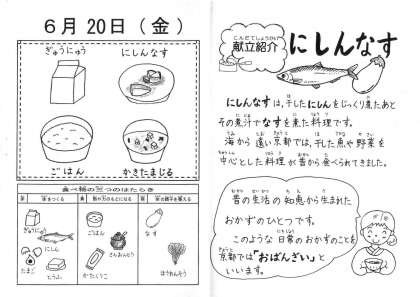 6月20日（金）
ぎゅうにゅう
にしんなす
ごはん
かきたまじる
食べ物の三つのはたらき
ぎゅうにゅう
にしん
たまご
とうふ
ごはん
さとう
かたくりこ
なす
ほうれんそう
こんだてしょうかい
献立紹介
にしんなす
にしんなすは、干したにしんをじっくり煮たあと
その煮汁でなすを煮た料理です。
海から遠い京都では、干した魚や野菜を
中心とした料理が昔から食べられてきました。
昔の生活の知恵から生まれた
おかずのひとつです。
このような日常のおかずのことを
京都では「おばんざい」と
いいます。